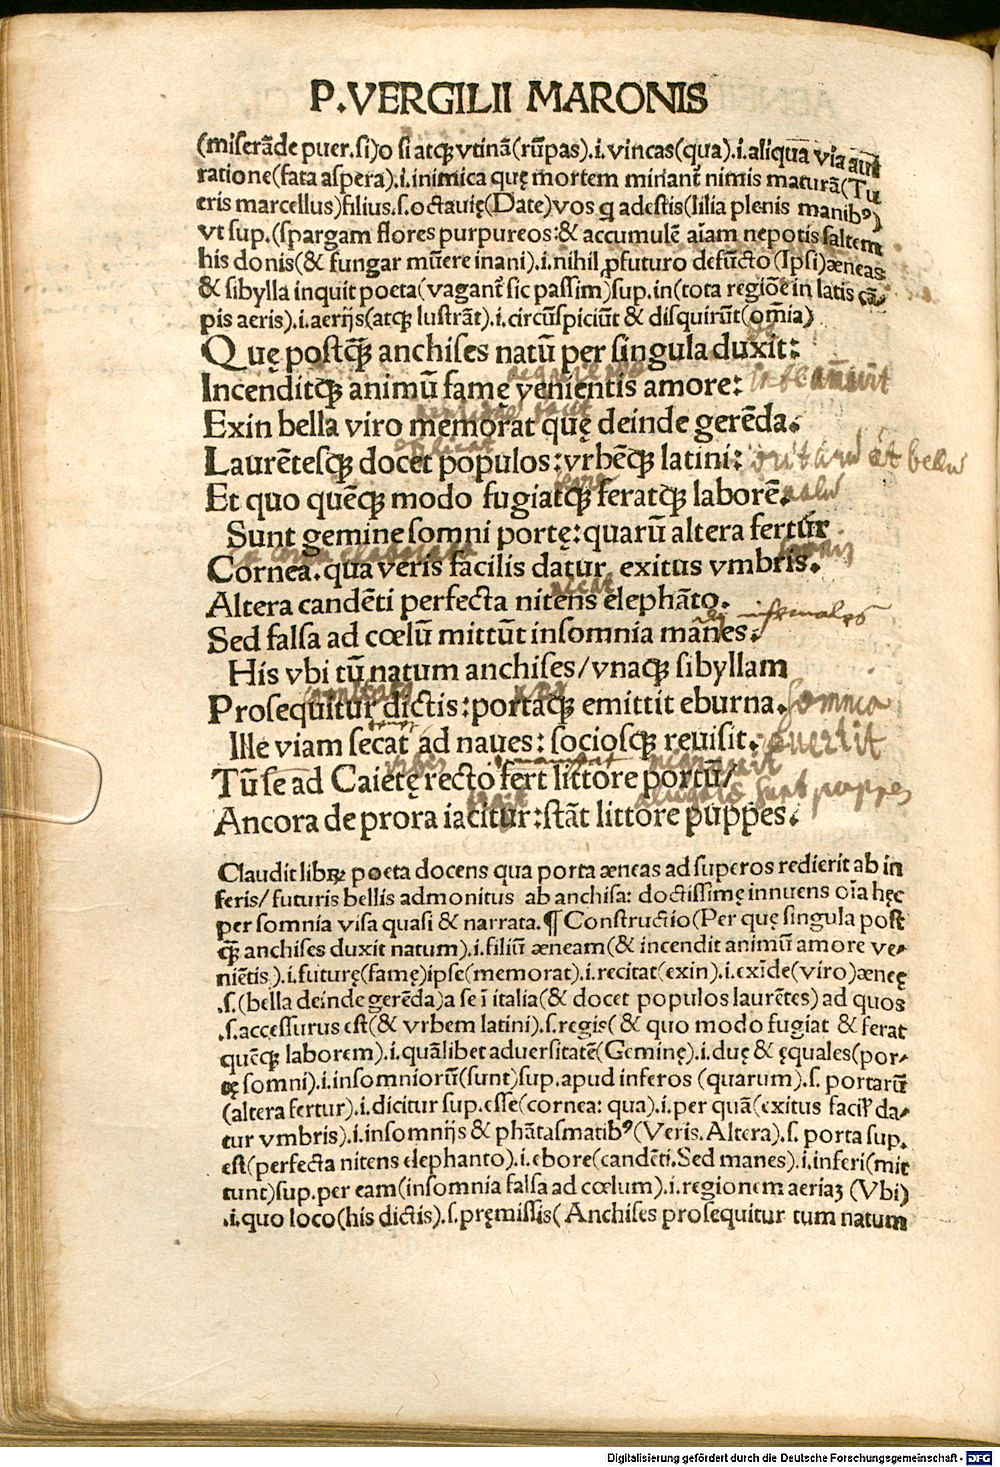 P. VERGILII MARONIS
(miserãde puer. si) o si atqꝫ vtinã (rũpas) .i. vincas (qua) .i. aliqua via aut
ratione (fata aspera) .i. inimica quę mortem minant᷑ nimis maturã (Tu
eris marcellus) filius .s. octauię (Date) vos q adestis (lilia plenis manibꝰ)
vt sup. (spargam flores purpureos: & accumulẽ aĩam nepotis saltem
his donis (& fungar mũere inani) .i. nihil ꝓfuturo defũcto (Ipsi) æneas
& sibylla inquit poeta (vagant᷑ sic passim) sup. in (tota regiõe in latis cã⸗
pis aeris) .i. aerijs (atqꝫ lustrãt) .i. circũspiciũt & disquirũt (om̃ia)
Quę postqꝫ̃ anchises natũ per singula duxit:
Incenditqꝫ animũ famę venientis amore: inflammauit
Exin bella viro memorat quę deinde gerẽda.
Laurẽtesqꝫ docet populos: vrbẽqꝫ latini:
Et quo quẽqꝫ modo fugiatqꝫ feratqꝫ laborẽ.
Sunt gemine somni portę: quarũ altera fertur
Cornea. qua veris facilis datur exitus vmbris.
Altera candẽti perfecta nitens elephãto.
infernales
Sed falsa ad cœlũ mittũt insomnia manes.
His vbi tũ natum anchises / vnaqꝫ sibyllam
Prosequitur dictis: portaqꝫ emittit eburna. somnia
Ille viam secat ad naues: sociosqꝫ reuisit.
Tũ se ad Caietę recto fert littore portũ /
Ancora de prora iacitur: stãt littore puppes.
Claudit librꝫ poeta docens qua porta æneas ad superos redierit ab in
feris / futuris bellis admonitus ab anchisa: doctissimę innuens oĩa hęc
per somnia visa quasi & narrata. ¶ Constructio (Per quę singula post
qꝫ̃ anchises duxit natum) .i. filiũ æneam (& incendit animũ amore ve⸗
niẽtis) .i. futurę (famę) ipse (memorat) .i. recitat (exin) .i. exĩde (viro) æneę
.s. (bella deinde gerẽda) a se ĩ italia (& docet populos laurẽtes) ad quos
.s. accessurus est (& vrbem latini) .s. regis (& quo modo fugiat & ferat
quẽqꝫ laborem) .i. quãlibet aduersitatẽ (Geminę) .i. duę & ęquales (por⸗
tę somni) .i. insomniorũ (sunt) sup. apud inferos (quarum) .s. portarũ
(altera fertur) .i. dicitur sup. esse (cornea: qua) .i. per quã (exitus facil' da⸗
tur vmbris) .i. insomnijs & phãtasmatibꝰ (Veris. Altera) .s. porta sup.
est (perfecta nitens elephanto) .i. ebore (candẽti. Sed manes) .i. inferi (mit
tunt) sup. per eam (insomnia falsa ad cœlum) .i. regionem aeriaꝫ (Vbi)
.i. quo loco (his dictis) .s. pręmissis (Anchises prosequitur tum natum
Digitalisierung gefördert durch die Deutsche Forschungsgemeinschaft - DFG